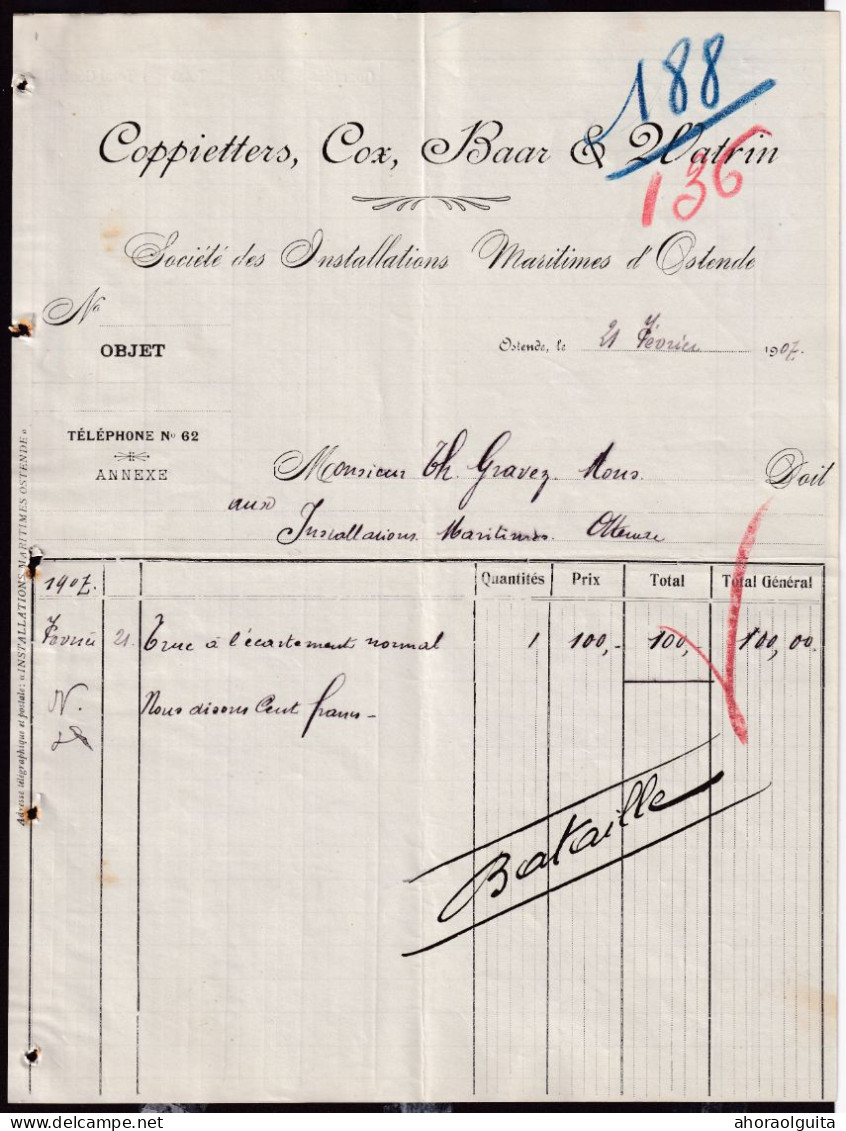 188
Coppietters, Cox, Baar & Watrin
136
Société des Installations Maritimes d'Ostende
No
OBJET
Ostende, le 21 Février 1907.
TÉLÉPHONE No 62
ANNEXE
Monsieur Th. Gravez Mons. Doit
aux
Installations Maritimes Ostende
Adresse télégraphique et postale: «INSTALLATIONS MARITIMES OSTENDE»
1907. Quantités Prix Total Total Général
Février 21. Truc à l'écartement normal 1 100,- 100,- 100,00.
N. Nous disons Cent francs -
Bataille
ahoraolguita